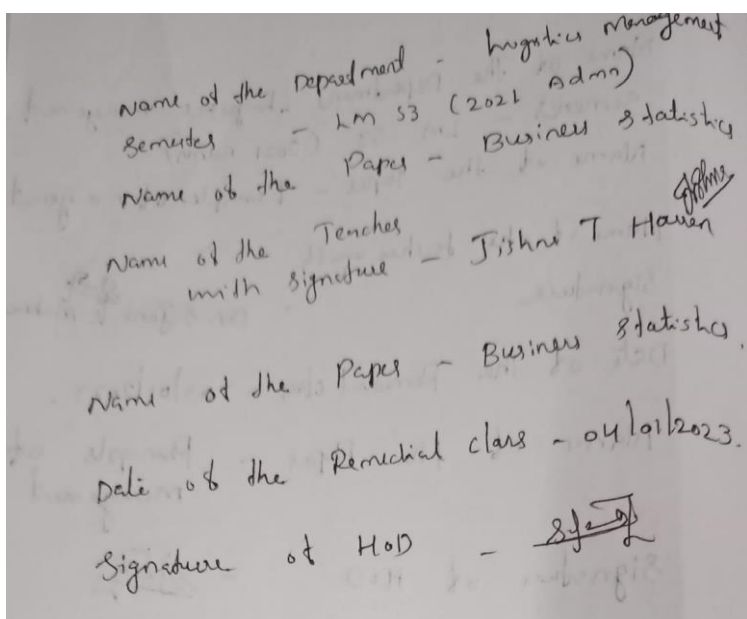 Name of the Department - Logistics Management
Semester - LM S3 (2021 Admn)
Name of the Paper - Business Statistics
Name of the Teacher
with signature - Jishnu T
Name of the Paper - Business Statistics.
Date of the Remedial class - 04/01/2023.
Signature of HOD -